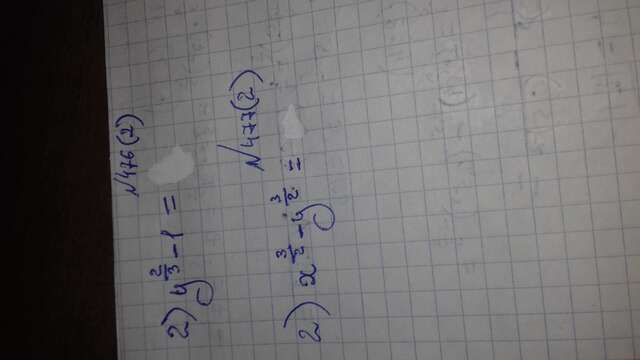 N476(2)
2) y^{2/3} - 1 =
N477(2)
2) x^{3/2} - y^{3/2} =